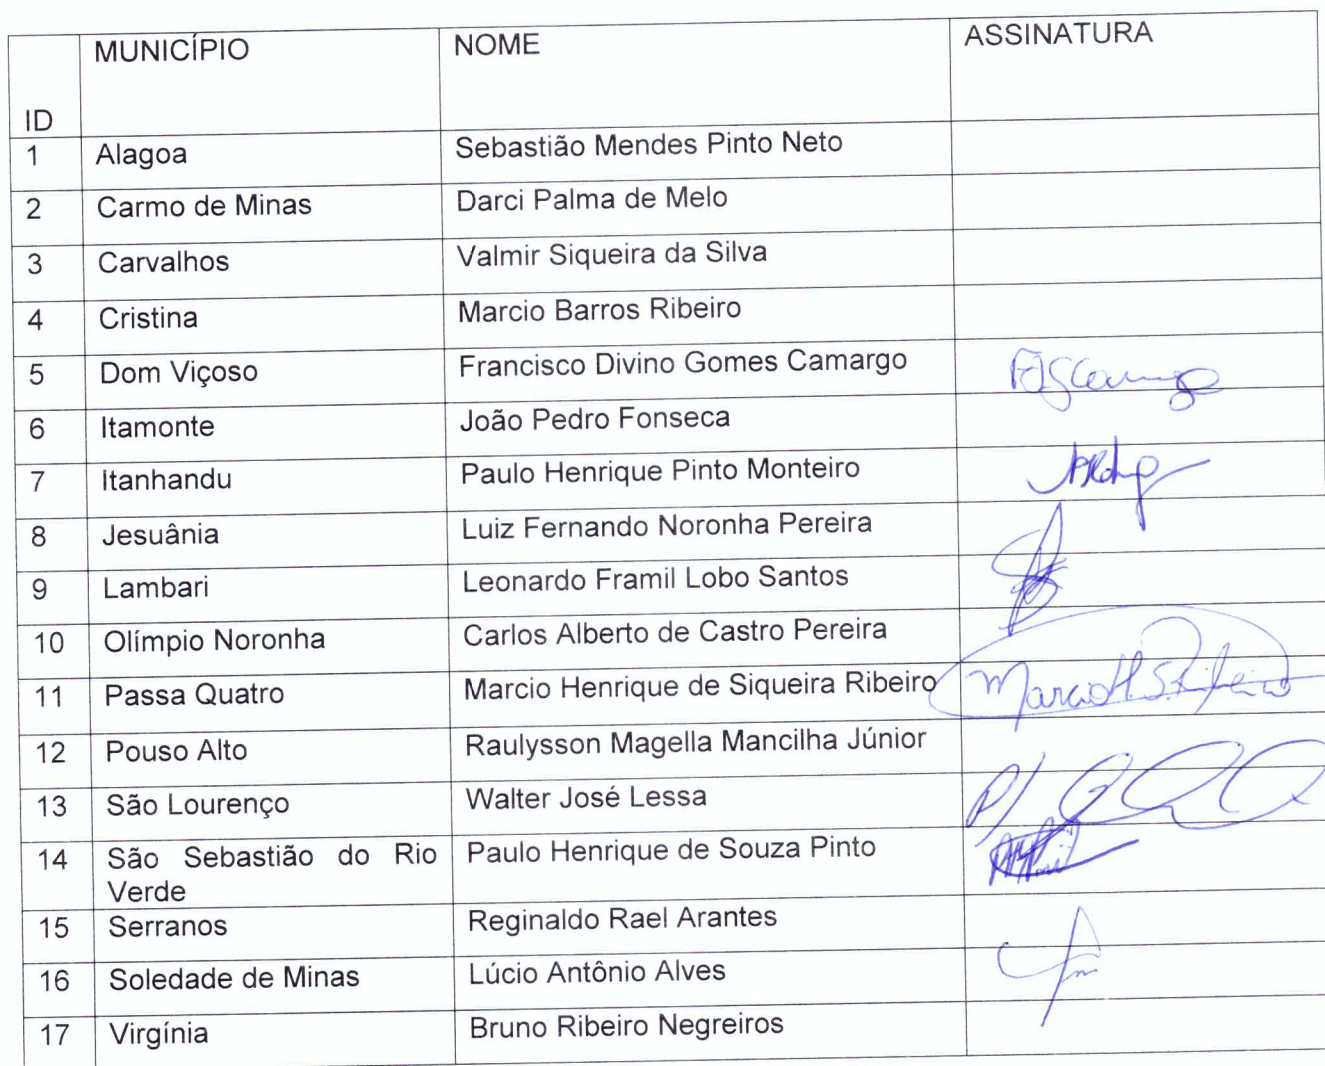 MUNICÍPIO NOME ASSINATURA
ID
1 Alagoa Sebastião Mendes Pinto Neto
2 Carmo de Minas Darci Palma de Melo
3 Carvalhos Valmir Siqueira da Silva
4 Cristina Marcio Barros Ribeiro
5 Dom Viçoso Francisco Divino Gomes Camargo
6 Itamonte João Pedro Fonseca
7 Itanhandu Paulo Henrique Pinto Monteiro
8 Jesuânia Luiz Fernando Noronha Pereira
9 Lambari Leonardo Framil Lobo Santos
10 Olímpio Noronha Carlos Alberto de Castro Pereira
11 Passa Quatro Marcio Henrique de Siqueira Ribeiro Marcio H. S. Ribeiro
12 Pouso Alto Raulysson Magella Mancilha Júnior
13 São Lourenço Walter José Lessa
14 São Sebastião do Rio Paulo Henrique de Souza Pinto
Verde
15 Serranos Reginaldo Rael Arantes
16 Soledade de Minas Lúcio Antônio Alves
17 Virgínia Bruno Ribeiro Negreiros